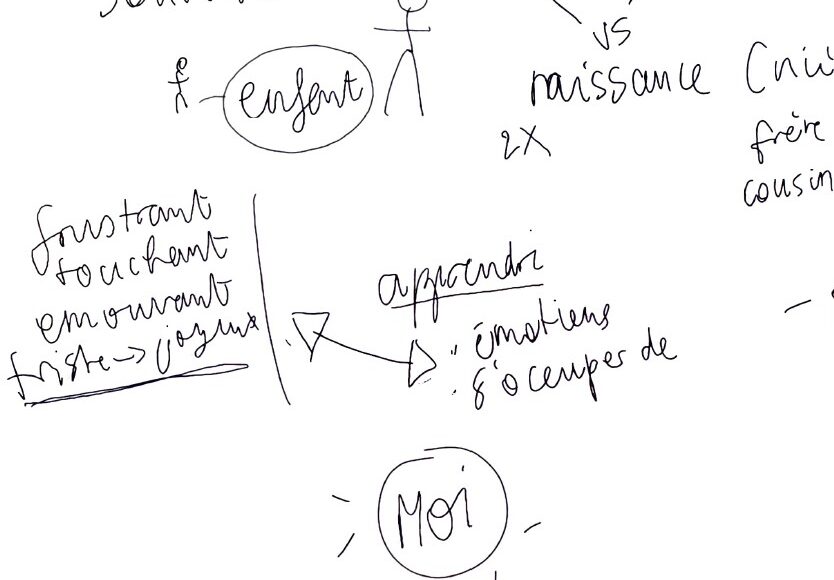 vs
enfant
naissance
2x
frère
cousin
frustrant
touchant
emouvant
triste → joyeux
apprendre
. émotions
. s'occuper de
Moi